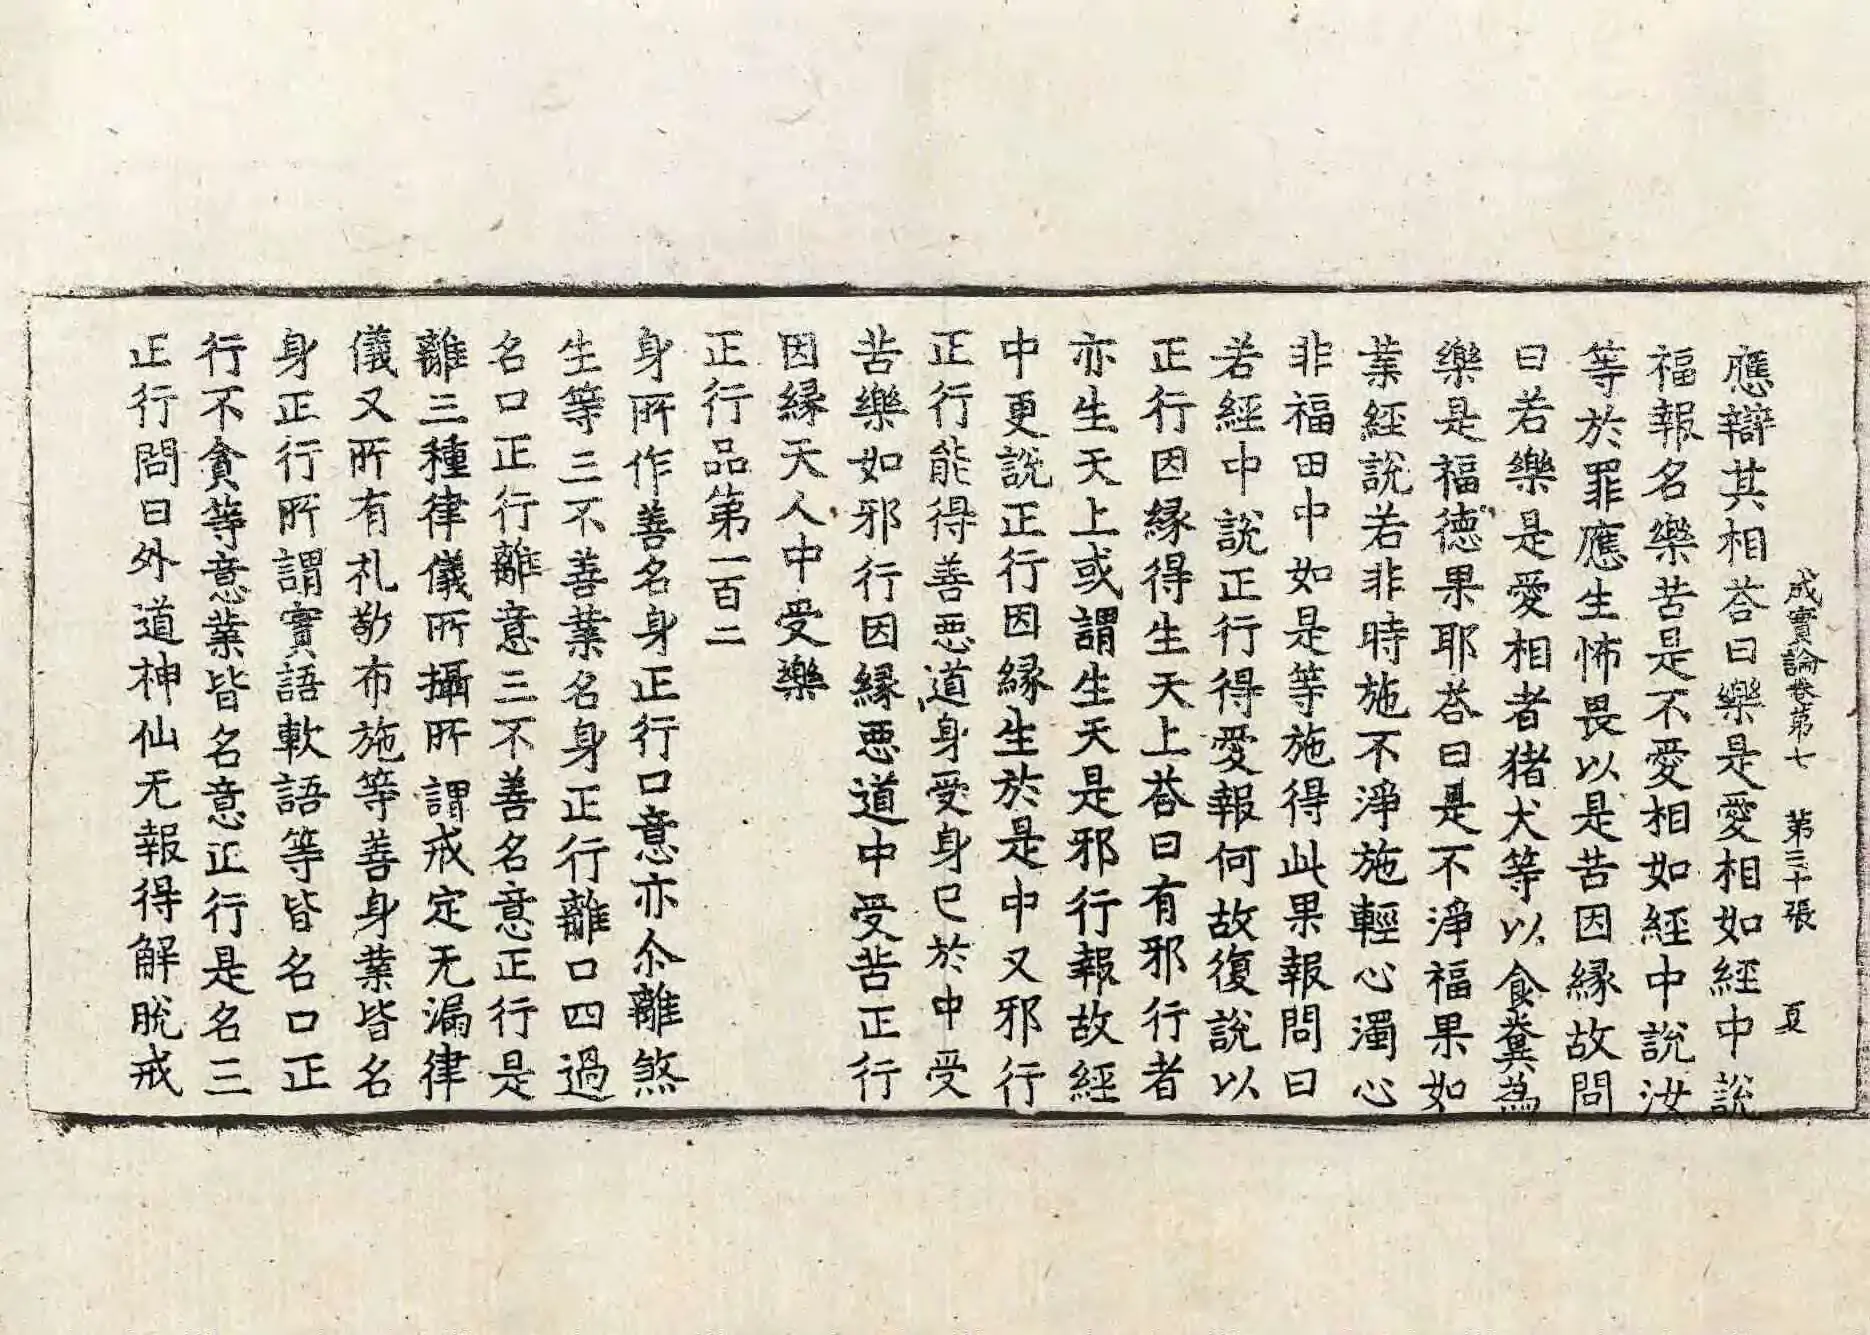 成實論卷第七　第三十張　夏
應辯其相荅曰樂是愛相如經中說
福報名樂苦是不愛相如經中說汝
等於罪應生怖畏以是苦因縁故問
曰若樂是愛相者猪犬等以食糞為
樂是福德果耶荅曰是不淨福果如
業經說若非時施不淨施輕心濁心
非福田中如是等施得此果報問曰
若經中說正行得愛報何故復說以
正行因縁得生天上荅曰有邪行者
亦生天上或謂生天是邪行報故經
中更說正行因縁生於是中又邪行
正行能得善惡道身受身已於中受
苦樂如邪行因縁惡道中受苦正行
因縁天人中受樂
正行品第一百二
身所作善名身正行口意亦尒離煞
生等三不善業名身正行離口四過
名口正行離意三不善名意正行是
離三種律儀所攝所謂戒定无漏律
儀又所有礼敬布施等善身業皆名
身正行所謂實語軟語等皆名口正
行不貪等意業皆名意正行是名三
正行問曰外道神仙无報得解脫戒